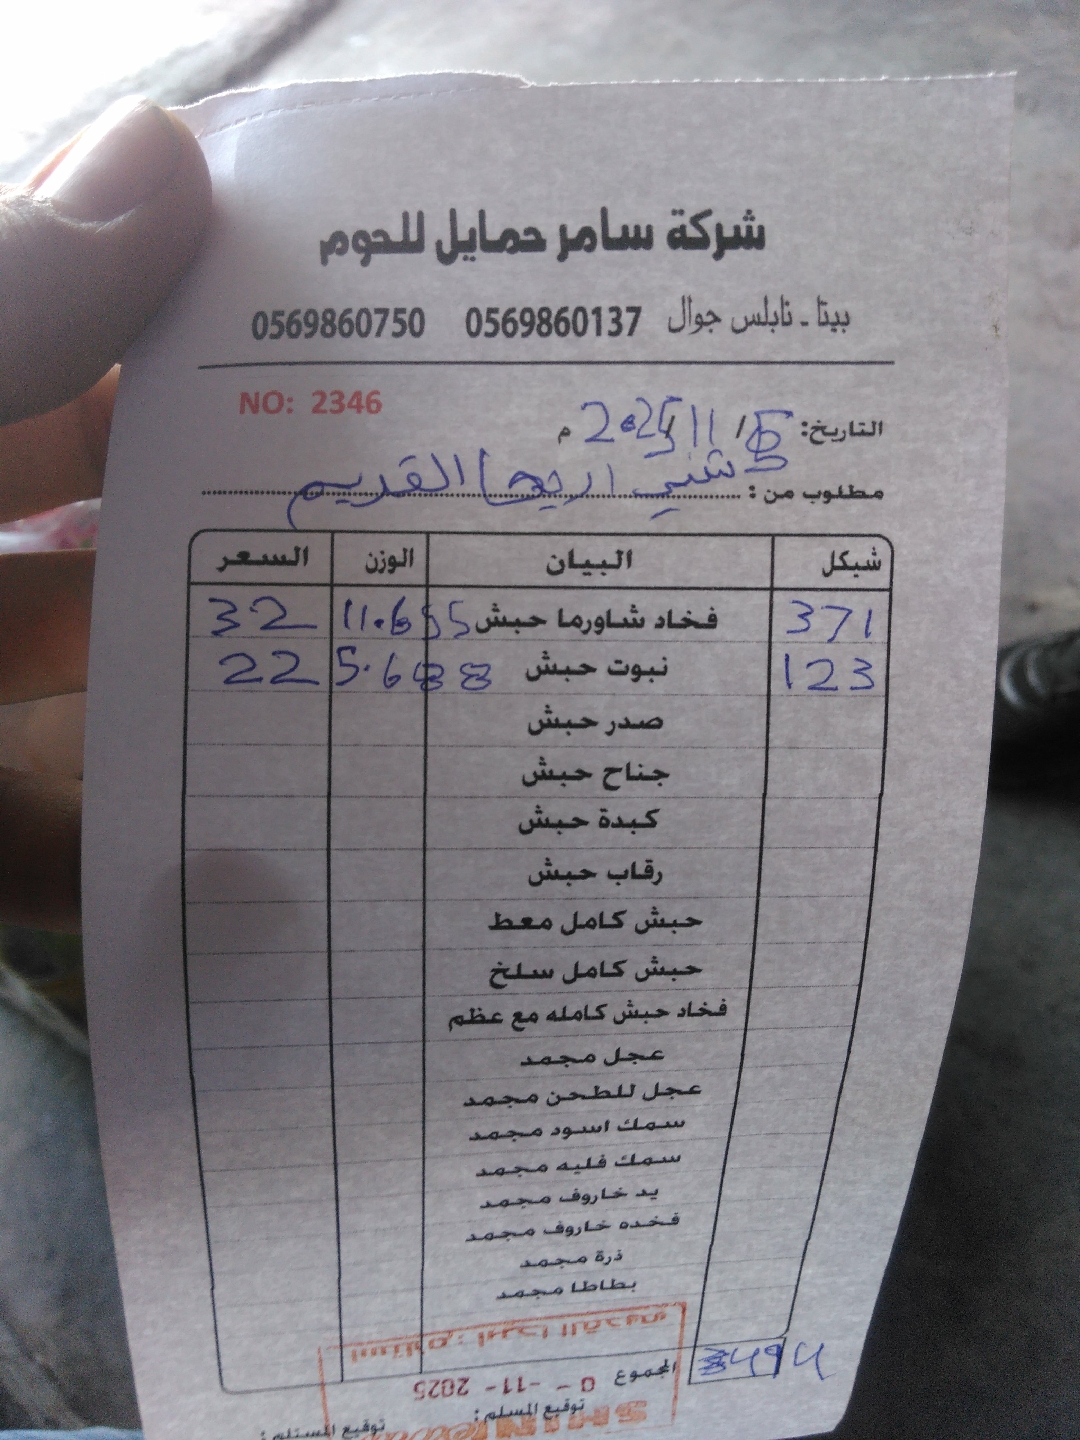 شركة سامر حمايل للحوم
بيتا - نابلس جوال 0569860137 0569860750
NO: 2346
التاريخ: / 11 / 2025 م
مطلوب من : شني اريحا القديم
شيكل البيان الوزن السعر
371 فخاد شاورما حبش 11.655 32
123 نبوت حبش 5.688 22
صدر حبش
جناح حبش
كبدة حبش
رقاب حبش
حبش كامل معط
حبش كامل سلخ
فخاد حبش كامله مع عظم
عجل مجمد
عجل للطحن مجمد
سمك اسود مجمد
سمك فليه مجمد
يد خاروف مجمد
فخده خاروف مجمد
ذرة مجمد
بطاطا مجمد
استلام : اريحا القديم
المجموع 494
-11- 2025
توقيع المسلم :
توقيع المستلم :